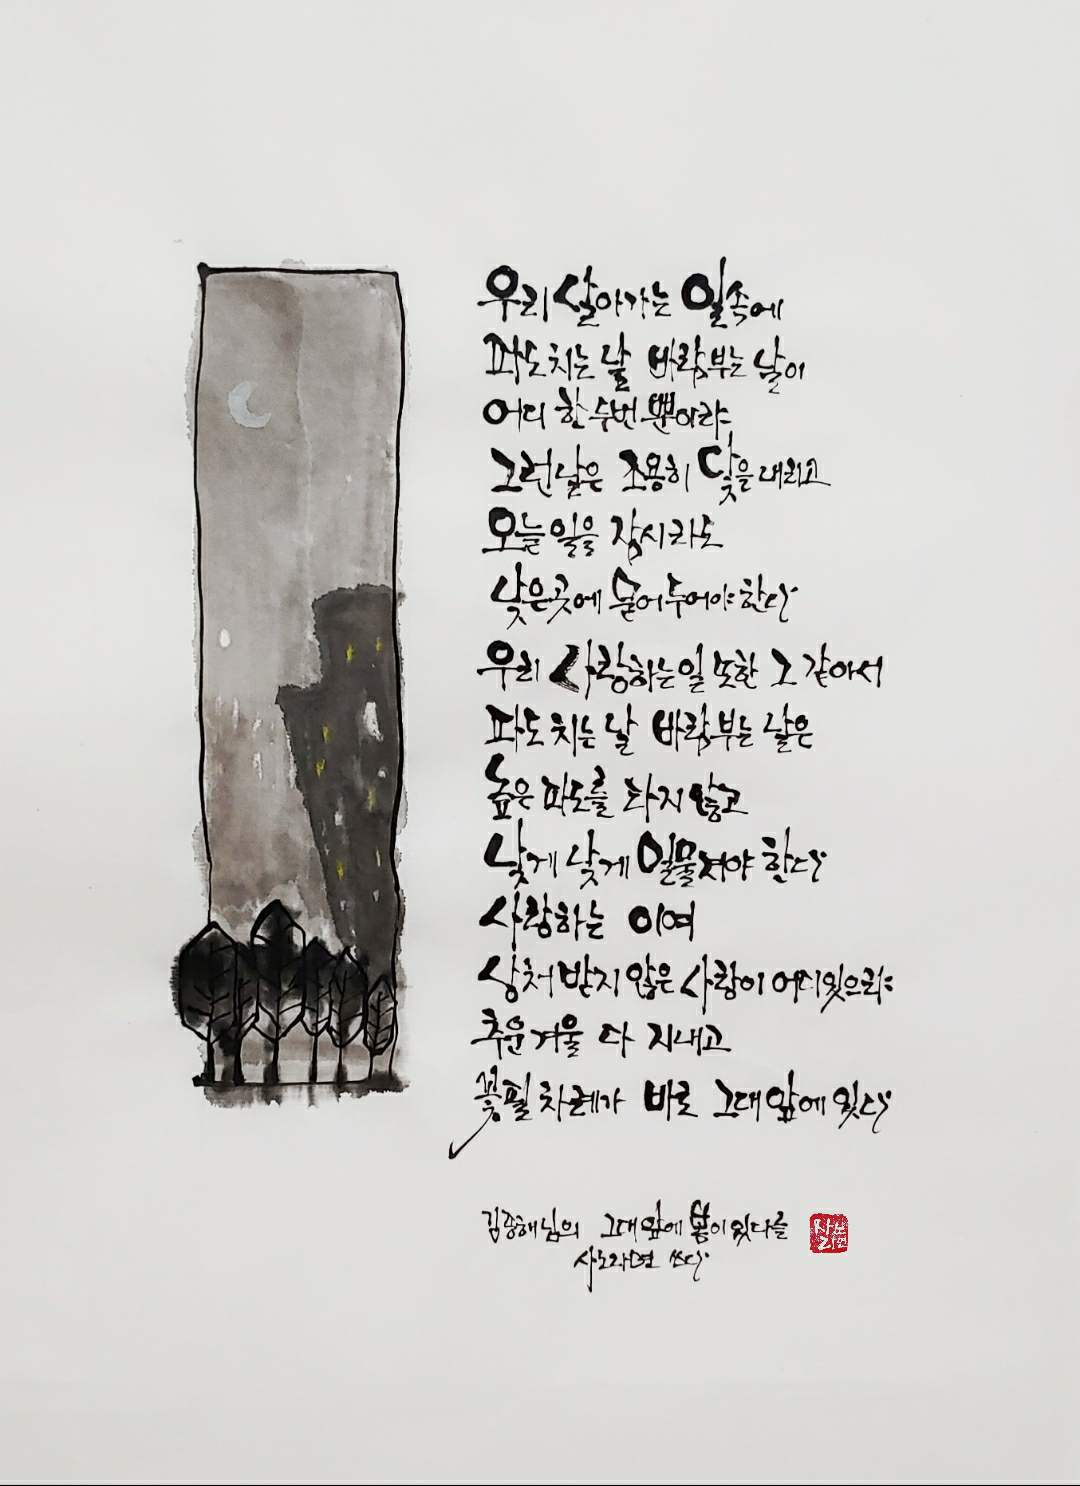 우리 살아가는 일속에
파도치는 날 바람부는 날이
어디 한 두번 뿐이랴
그런날은 조용히 닻을 내리고
오늘 일을 잠시라도
낮은곳에 묻어두어야 한다
우리 사랑하는 일 또한 그 같아서
파도치는 날 바람부는 날은
높은 파도를 타지 않고
낮게 낮게 밀물져야 한다
사랑하는 이여
상처받지 않은 사랑이 어디있으랴
추운겨울 다 지내고
꽃필 차례가 바로 그대 앞에 있다
김종해님의 그대 앞에 봄이 있다를
쓰다